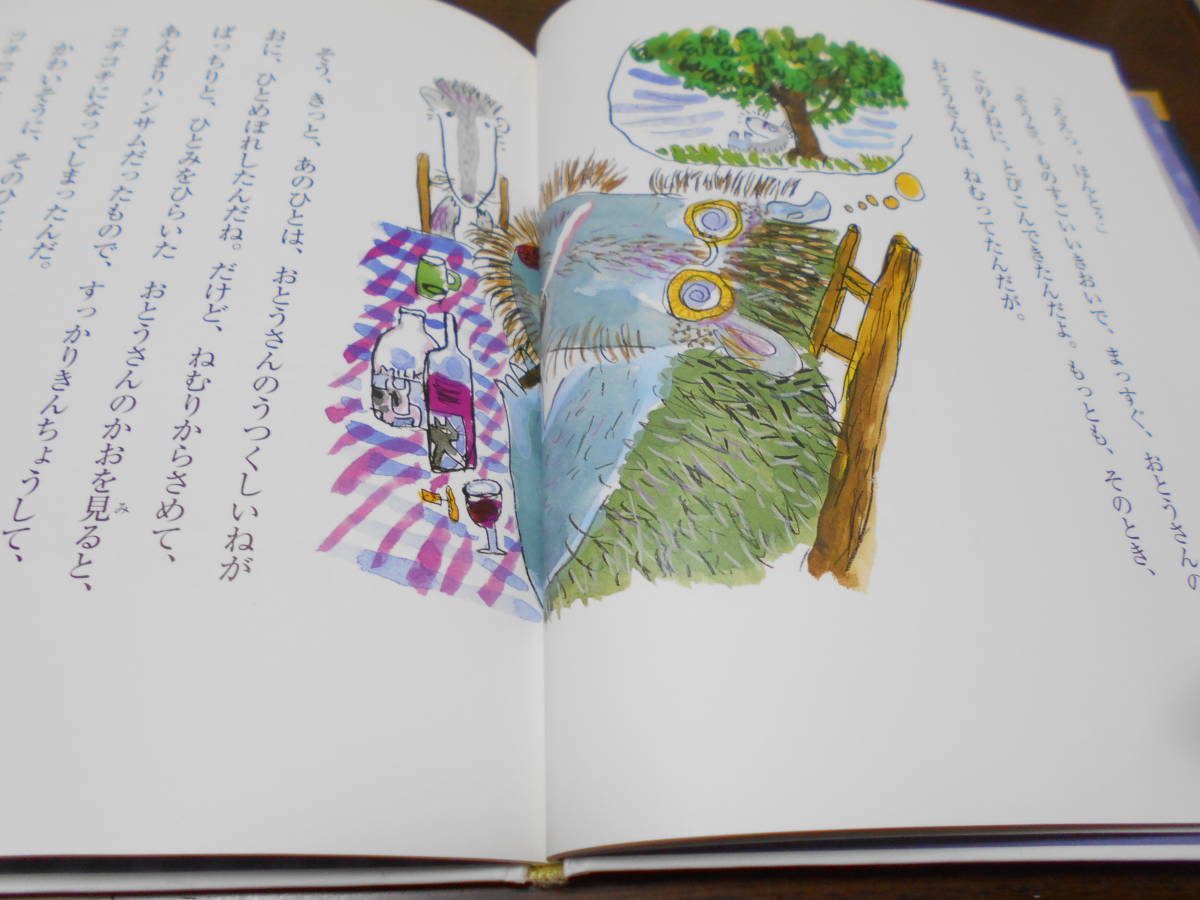 「ええっ、ほんとう?」
「そうさ。ものすごいいきおいで、まっすぐ、おとうさんの
このむねに、とびこんできたんだよ。もっとも、そのとき、
おとうさんは、ねむってたんだが。
そう、きっと、あのひとは、おとうさんのうつくしいねが
おに、ひとめぼれしたんだね。だけど、ねむりからさめて、
ぱっちりと、ひとみをひらいた おとうさんのかおを見ると、
み
あんまりハンサムだったもので、すっかりきんちょうして、
コチコチになってしまったんだ。
かわいそうに、そのひと
コチコチ
MILK